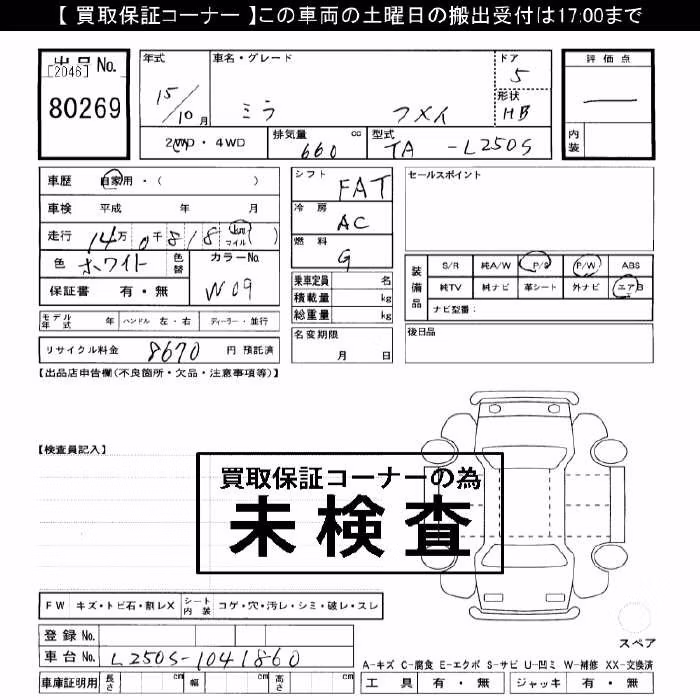 【 買取保証コーナー 】この車両の土曜日の搬出受付は17:00まで
出品 No.
[2046]
80269
年式 15/10月
車名・グレード ミラ
ドア 5
形状 HB
評価点 —
内装
2WD・4WD
排気量 660 cc
型式 TA-L250S
車歴 自家用・( )
車検 平成 年 月
走行 14万0千818 km マイル ( )
色 ホワイト 色替
カラーNo. W09
保証書 有・無
モデル年式 年 ハンドル 左・右 ディーラー・並行
リサイクル料金 8670 円 預託済
シフト FAT
冷房 AC
燃料 G
乗車定員 名
積載量 kg
総重量 kg
名変期限 月 日
セールスポイント
装備品
S/R 純A/W P/S P/W ABS
純TV 純ナビ 革シート 外ナビ エアB
ナビ型番:
後日品
【出品店申告欄(不良箇所・欠品・注意事項等)】
【検査員記入】
買取保証コーナーの為
未検査
FW キズ・トビ石・割レX シート内装 コゲ・穴・汚レ・シミ・破レ・スレ
登録 No.
車台 No. L250S-1041860
車庫証明用 長さ cm 幅 cm 高さ cm
スペア
A-キズ C-腐食 E-エクボ S-サビ U-凹ミ W-補修 XX-交換済
工具 有・無 ジャッキ 有・無